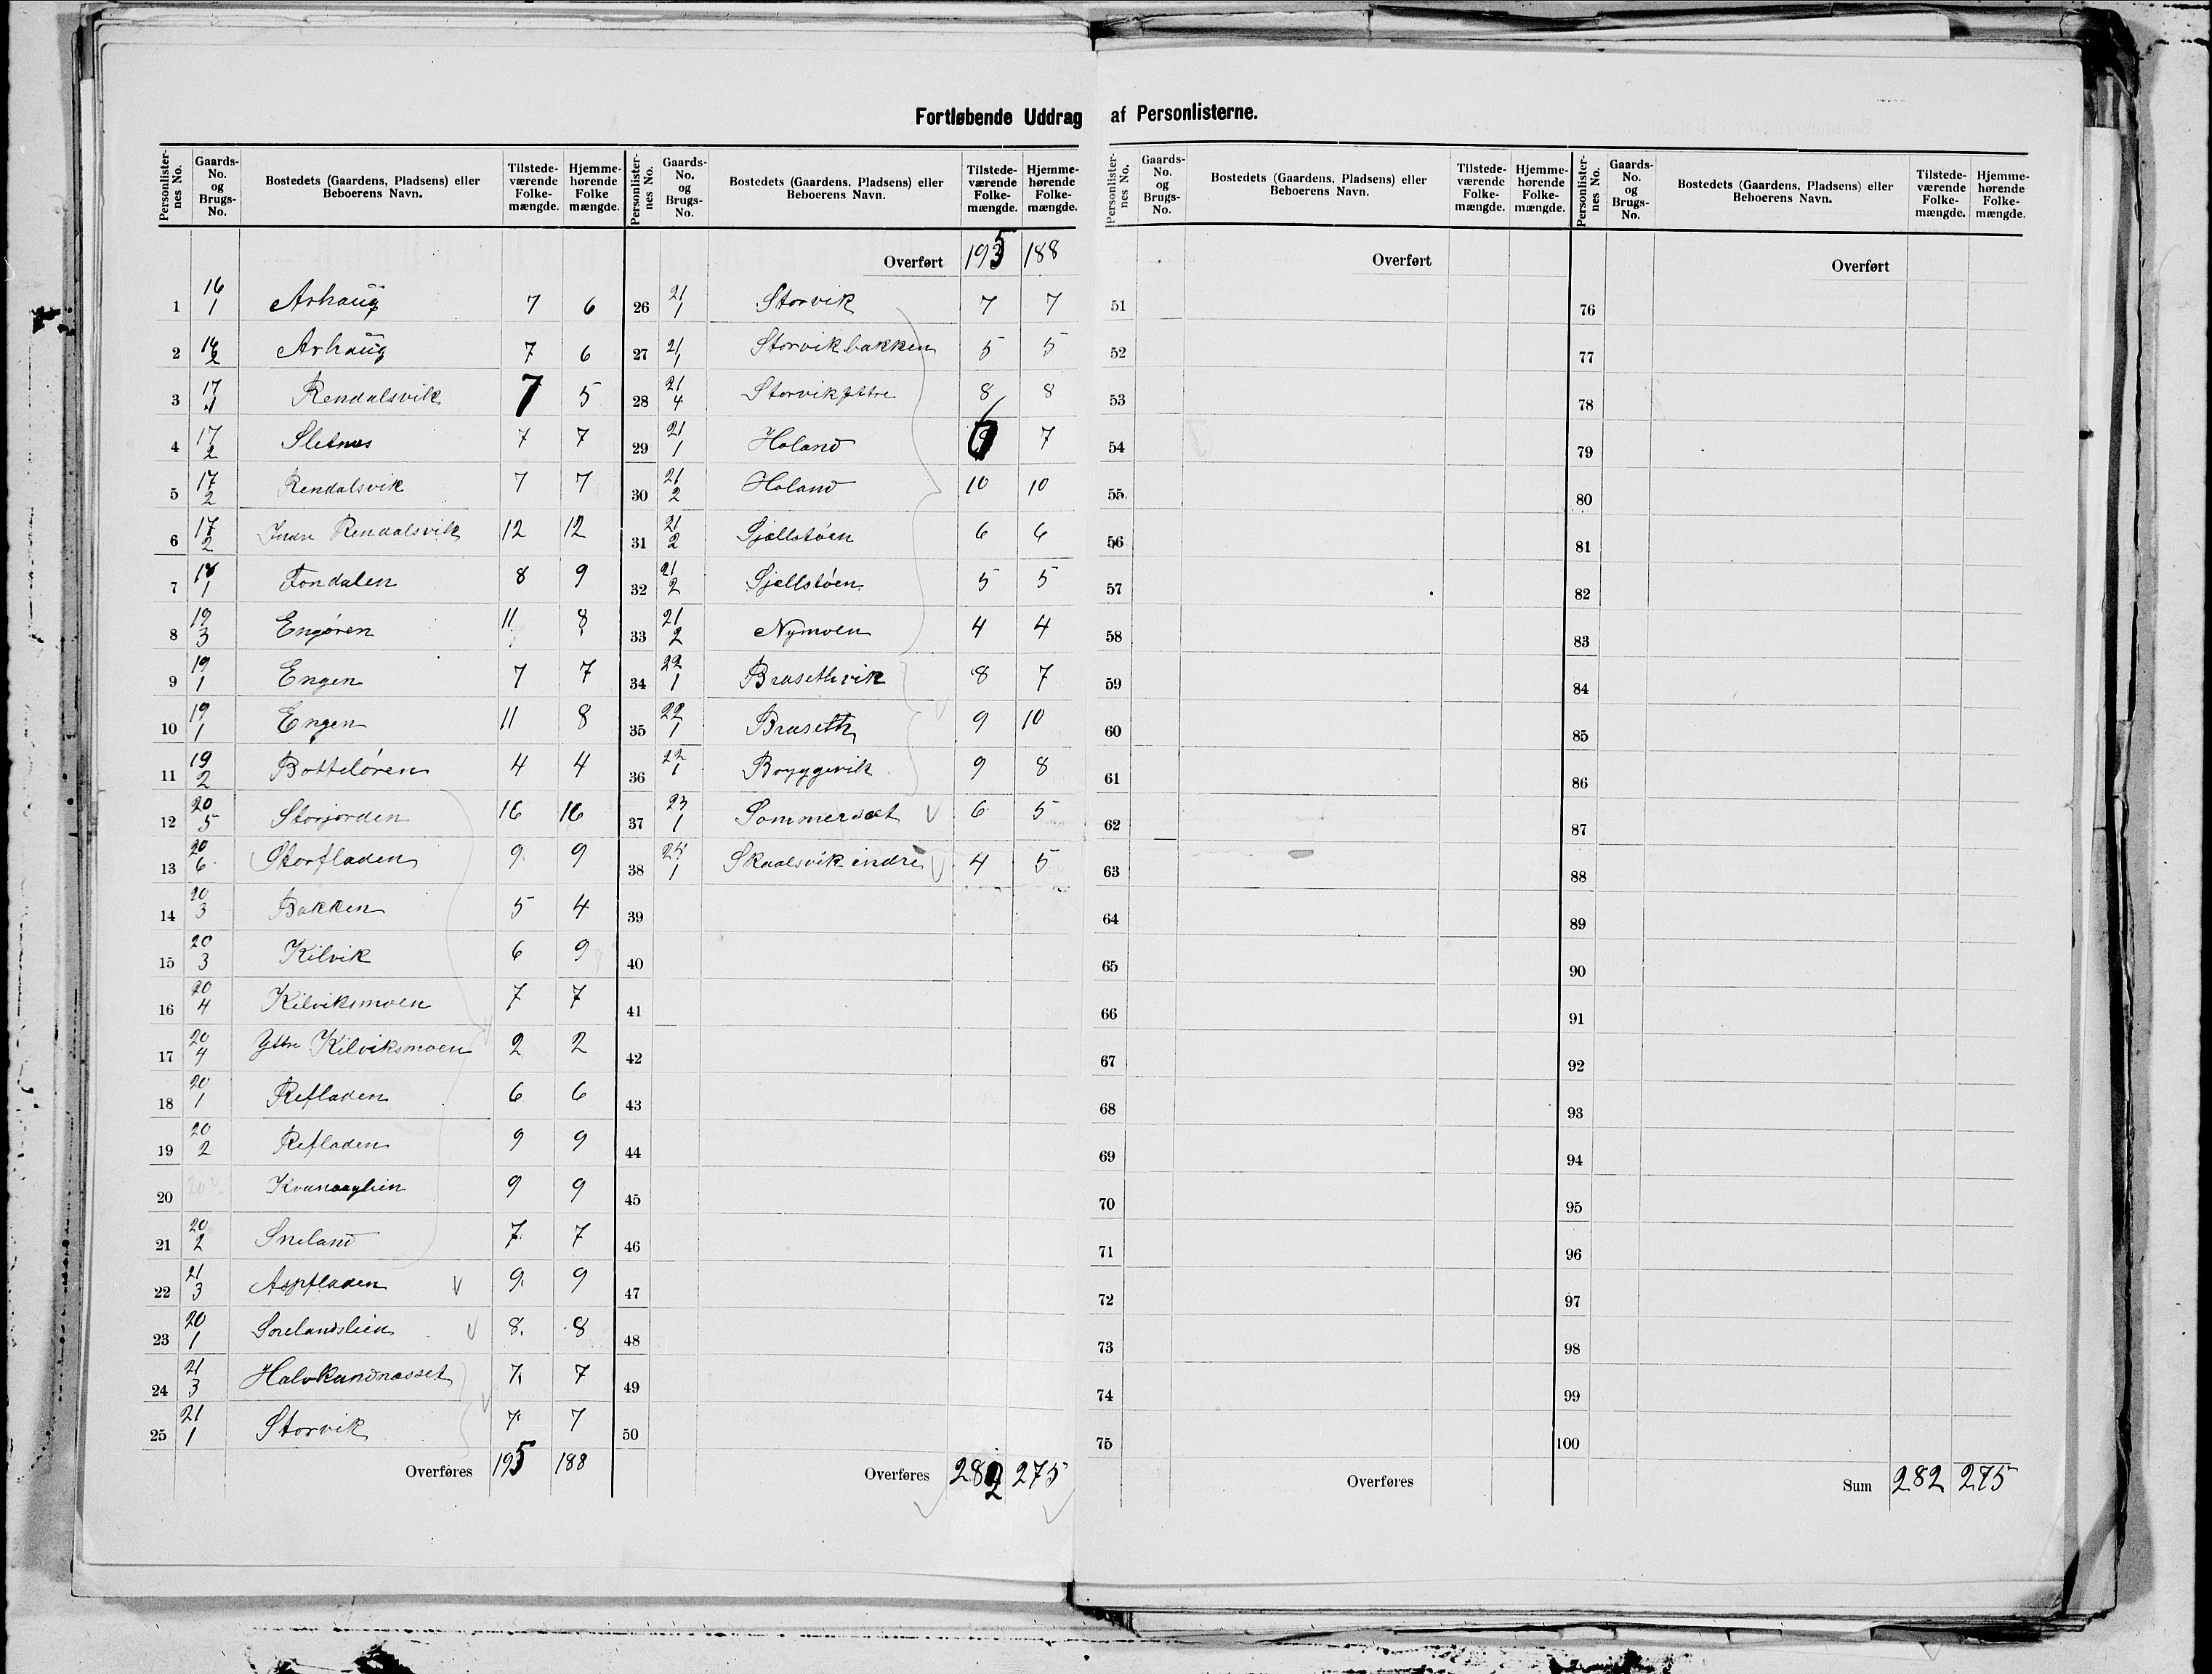 Fortløbende Uddrag af Personlisterne.
Personlister-nes No. Gaards-No. og Brugs-No. Bostedets (Gaardens, Pladsens) eller Beboerens Navn. Tilstede-værende Folke-mængde. Hjemme-hørende Folke mængde.
1 16/1 Arhaug 7 6
2 16/2 Arhaug 7 6
3 17/1 Rendalsvik 7 5
4 17/2 Sletnes 7 7
5 17/2 Rendalsvik 7 7
6 17/2 Indre Rendalsvik 12 12
7 18/1 Fondalen 8 9
8 19/3 Engøren 11 8
9 19/1 Engen 7 7
10 19/1 Engen 11 8
11 19/2 Botteløren 4 4
12 20/5 Storjorden 16 16
13 20/6 Storfladen 9 9
14 20/3 Bakken 5 4
15 20/3 Kilvik 6 9
16 20/4 Kilviksmoen 7 7
17 20/4 Yttre Kilviksmoen 2 2
18 20/1 Refladen 6 6
19 20/2 Refladen 9 9
20 9 9
21 20/2 Sneland 7 7
22 21/3 Aspfladen 9 9
23 20/1 Snelandslien 8 8
24 21/3 Halvkandnæsset 7 7
25 21/1 Storvik 7 7
Overføres 195 188
Personlister-nes No. Gaards-No. og Brugs-No. Bostedets (Gaardens, Pladsens) eller Beboerens Navn. Tilstede-værende Folke-mængde. Hjemme-hørende Folke-mængde.
Overført 195 188
26 21/1 Storvik 7 7
27 21/1 Storvikbakken 5 5
28 21/4 Storvik yttre 8 8
29 21/1 Holand 6 7
30 21/2 Holand 10 10
31 21/2 Gjællstøen 6 6
32 21/2 Gjællstøen 5 5
33 21/2 Nymoen 4 4
34 22/1 Brasethvik 8 7
35 22/1 Braseth 9 10
36 22/1 Bryggevik 9 8
37 23/1 Sommersæt 6 5
38 24/1 Skaalsvik indre 4 5
39
40
41
42
43
44
45
46
47
48
49
50
Overføres 282 275
Personlister-nes No. Gaards-No. og Brugs-No. Bostedets (Gaardens, Pladsens) eller Beboerens Navn. Tilstede-værende Folke-mængde. Hjemme-hørende Folke-mængde.
Overført
51
52
53
54
55
56
57
58
59
60
61
62
63
64
65
66
67
68
69
70
71
72
73
74
75
Overføres
Personlister-nes No. Gaards-No. og Brugs-No. Bostedets (Gaardens, Pladsens) eller Beboerens Navn. Tilstede-værende Folke-mængde. Hjemme-hørende Folke-mængde.
Overført
76
77
78
79
80
81
82
83
84
85
86
87
88
89
90
91
92
93
94
95
96
97
98
99
100
Sum 282 275